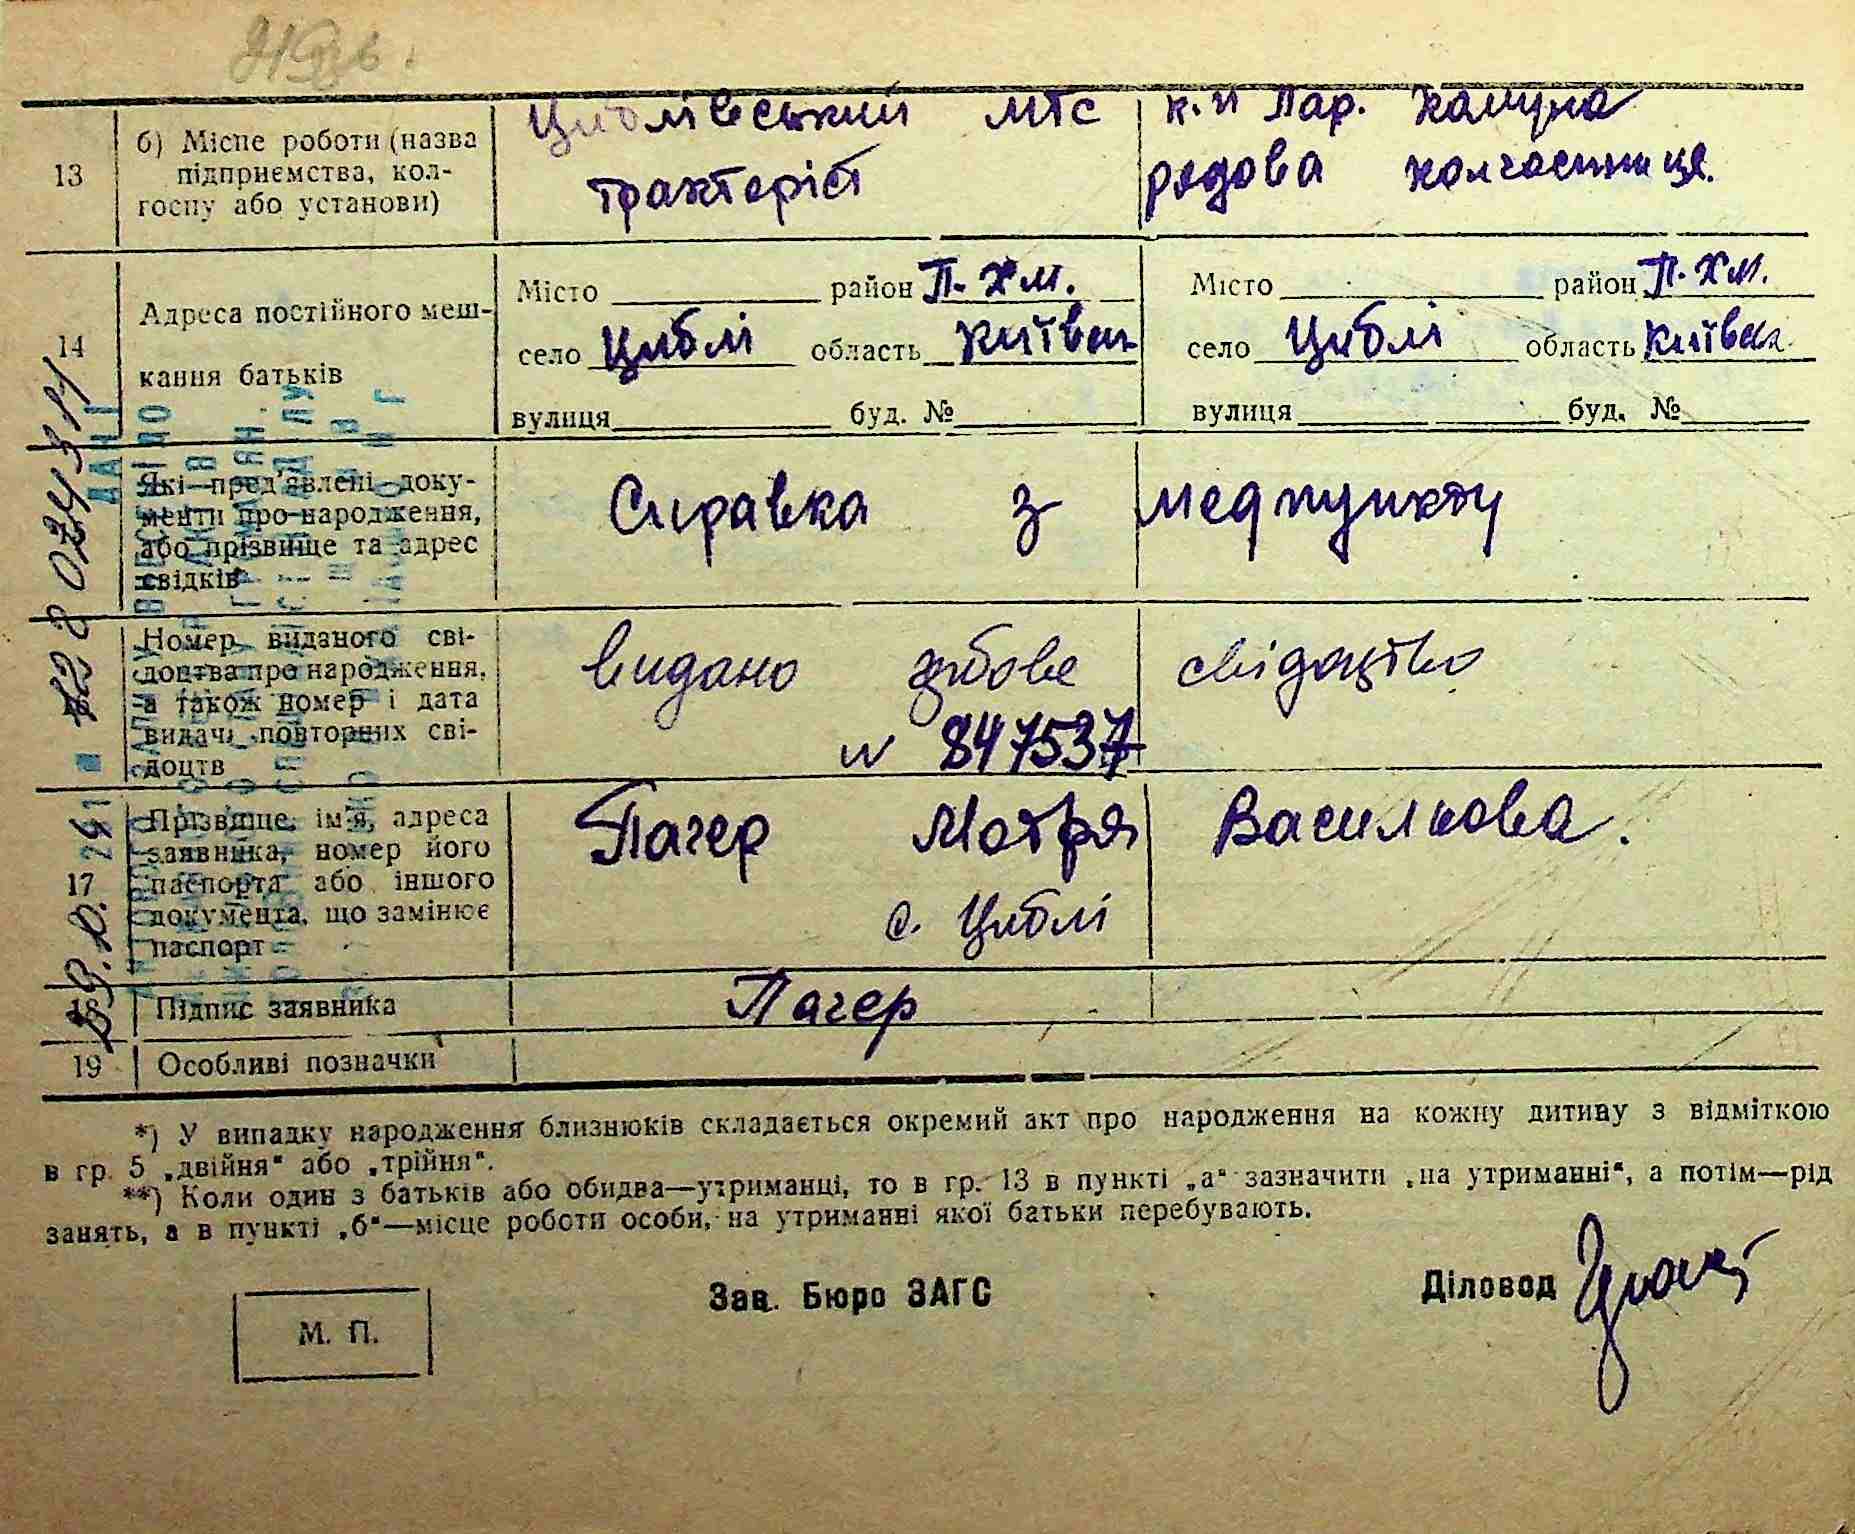 Циблівський МТС к.п Пар. Комуна
13 б) Місце роботи (назва підприємства, колгоспу або установи)
трактеріст рядова колгоспниця.
14 Адреса постійного мешкання батьків
Місто район П-ХМ. Місто район П-ХМ.
село Циблі область Київськ село Циблі область Київськ
вулиця буд. № вулиця буд. №
Які пред'явлені документи про народження, або прізвище та адрес свідків
Справка з медпункту
Номер виданого свідоцтва про народження, а також номер і дата видачі повторних свідоцтв
видано свідоцтво
N 847537
17 Прізвище, ім'я, адреса заявника, номер його паспорта або іншого документа, що замінює паспорт
Пагер Мотря Василькова.
с. Циблі
18 Підпис заявника Пагер
19 Особливі позначки
*) У випадку народження близнюків складається окремий акт про народження на кожну дитину з відміткою
в гр. 5 „двійня“ або „трійня“.
**) Коли один з батьків або обидва—утриманці, то в гр. 13 в пункті „а“ зазначити „на утриманні“, а потім—рід
занять, а в пункті „б“—місце роботи особи, на утриманні якої батьки перебувають.
Зав. Бюро ЗАГС Діловод
М. П.